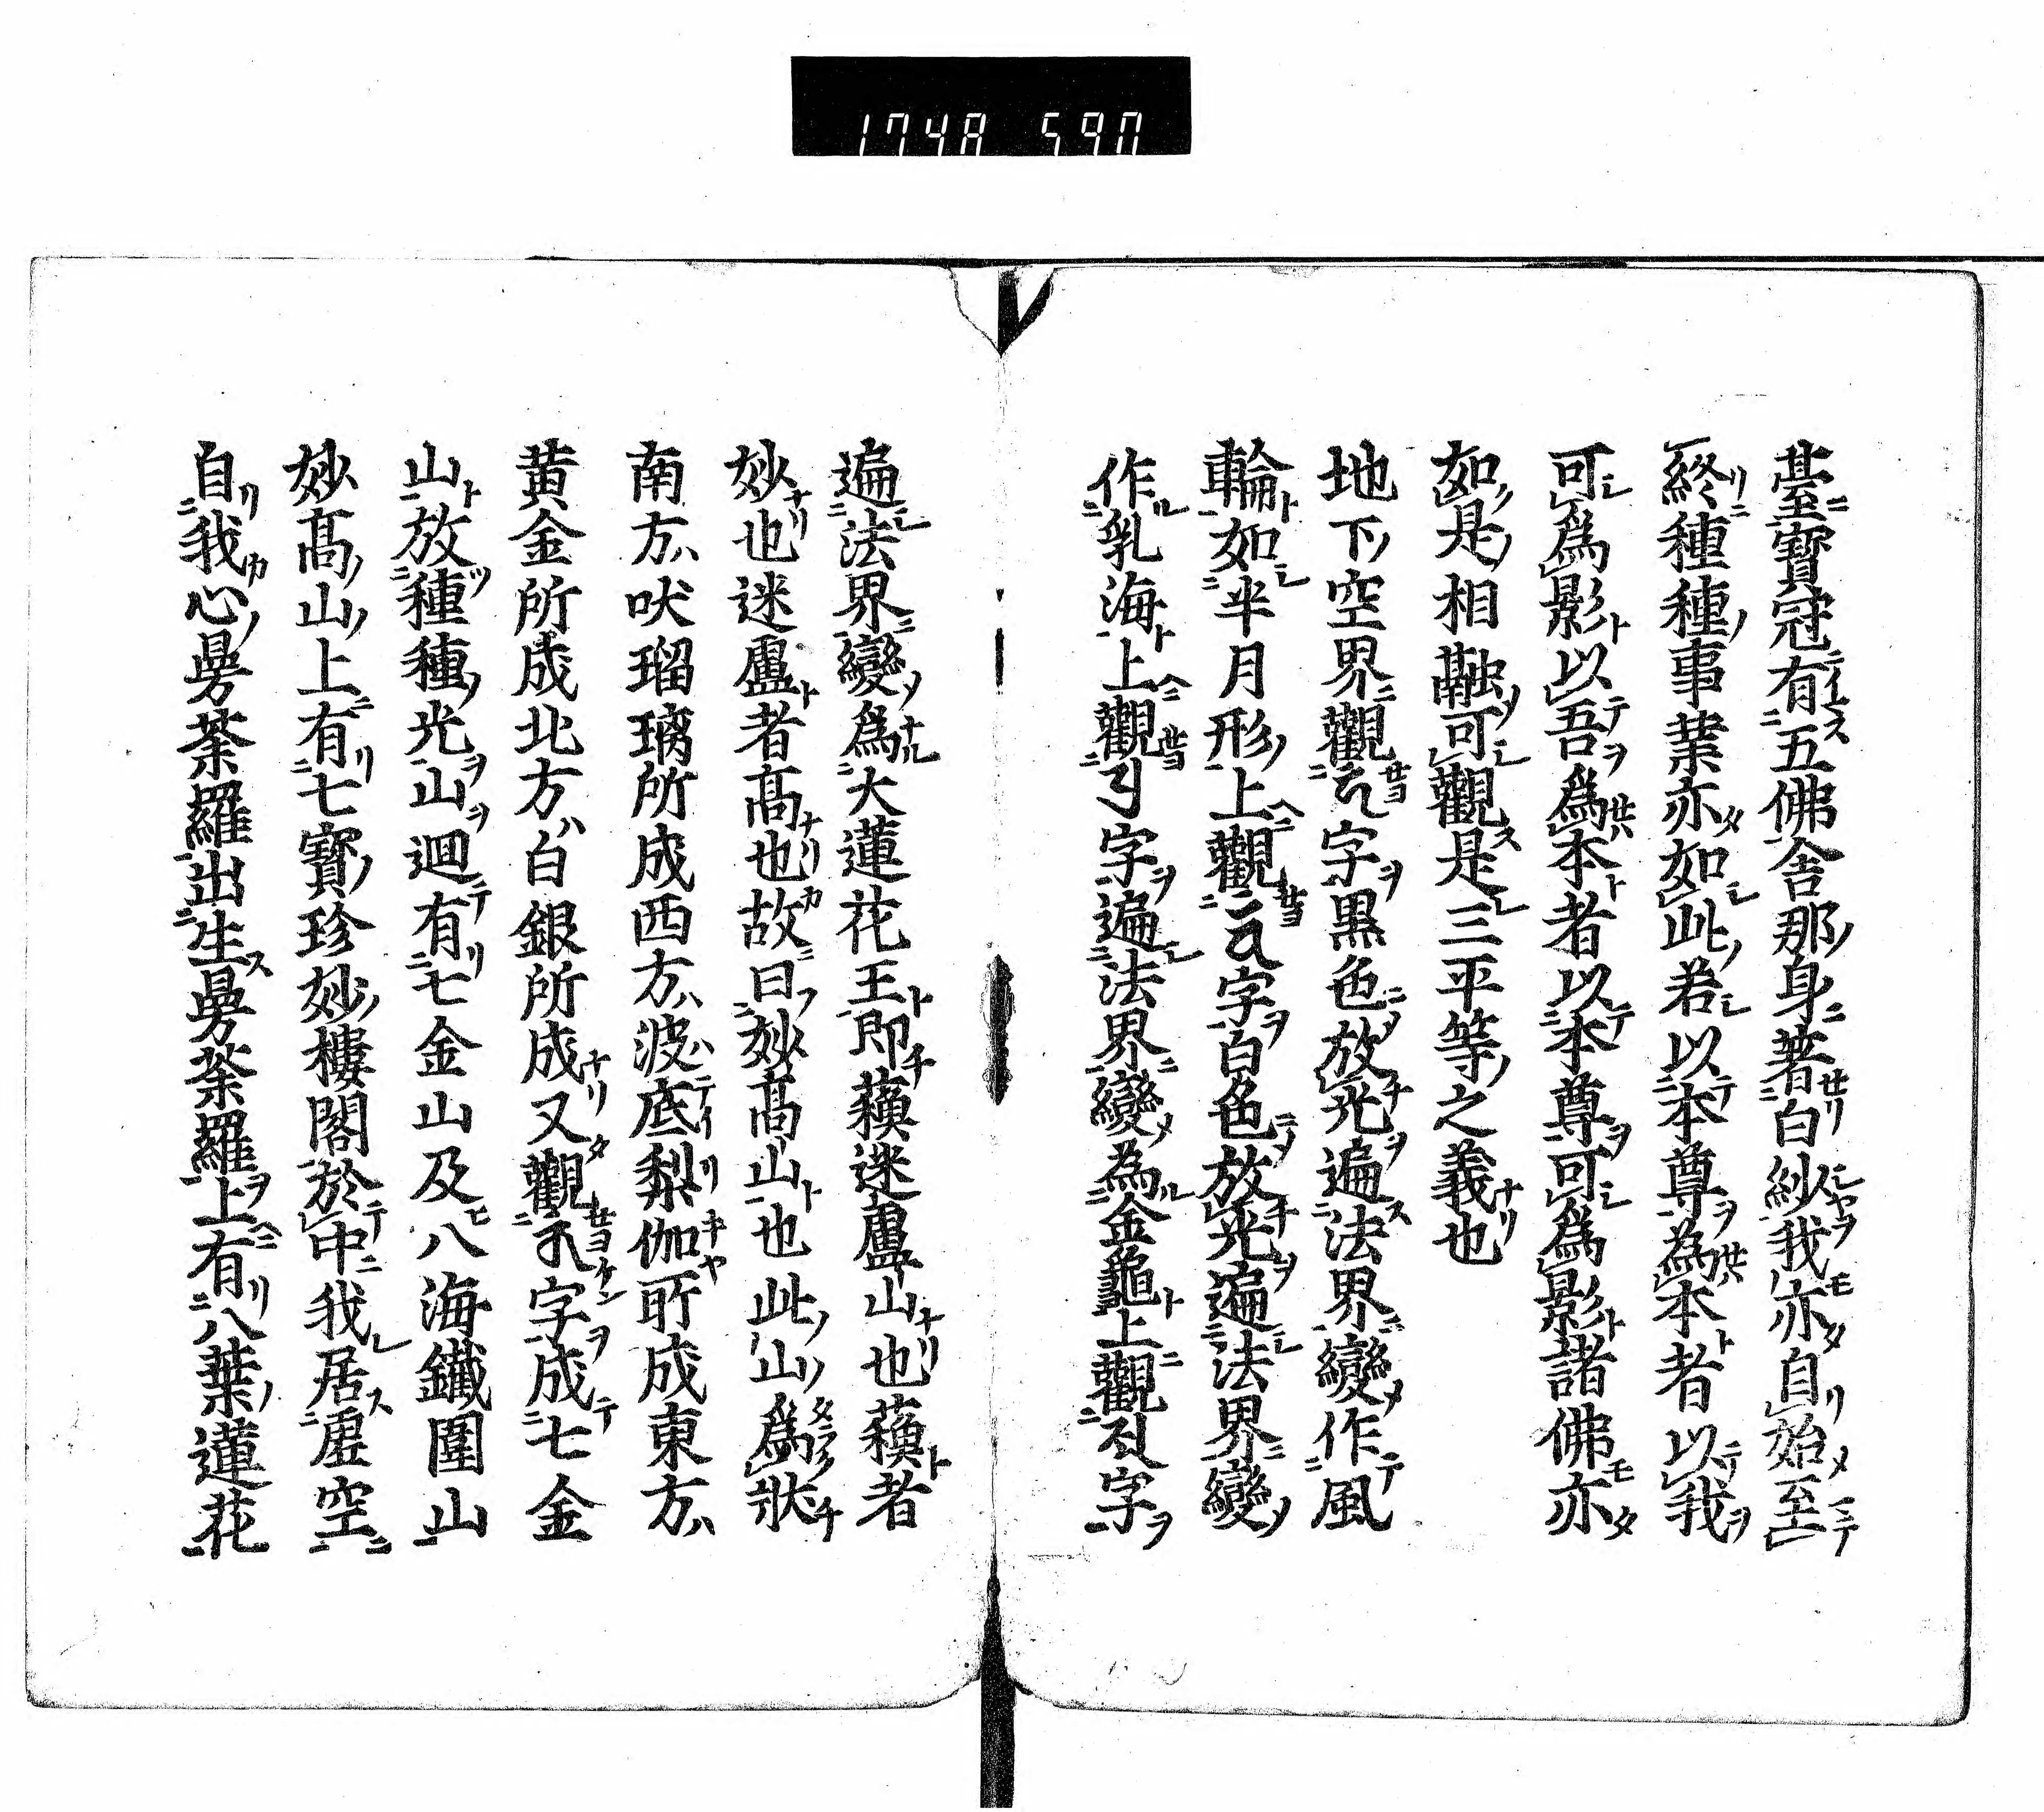 1748 590
臺寶冠有五佛舍那身著白紗我亦自始至
終種種事業亦如此若以本尊為本者以我
可爲影以吾爲本者以本尊可爲影諸佛亦
如是相融可觀是三平等之義也
地下空界觀字黒色放光遍法界變作風
輪如半月形上觀字白色放光遍法界變
作乳海上觀字遍法界變為金龜上觀字
遍法界變爲大蓮花王即蘓迷盧山也蘓者
妙也迷盧者髙也故曰妙髙山也此山爲狀
南方吠瑠璃所成西方波底梨伽所成東方
黄金所成北方白銀所成又觀字成七金
山放種種光山迴有七金山及八海鐵圍山
妙髙山上有七寳珍妙樓閣於中我居虛空
自我心曼荼羅出生曼荼羅上有八葉蓮花